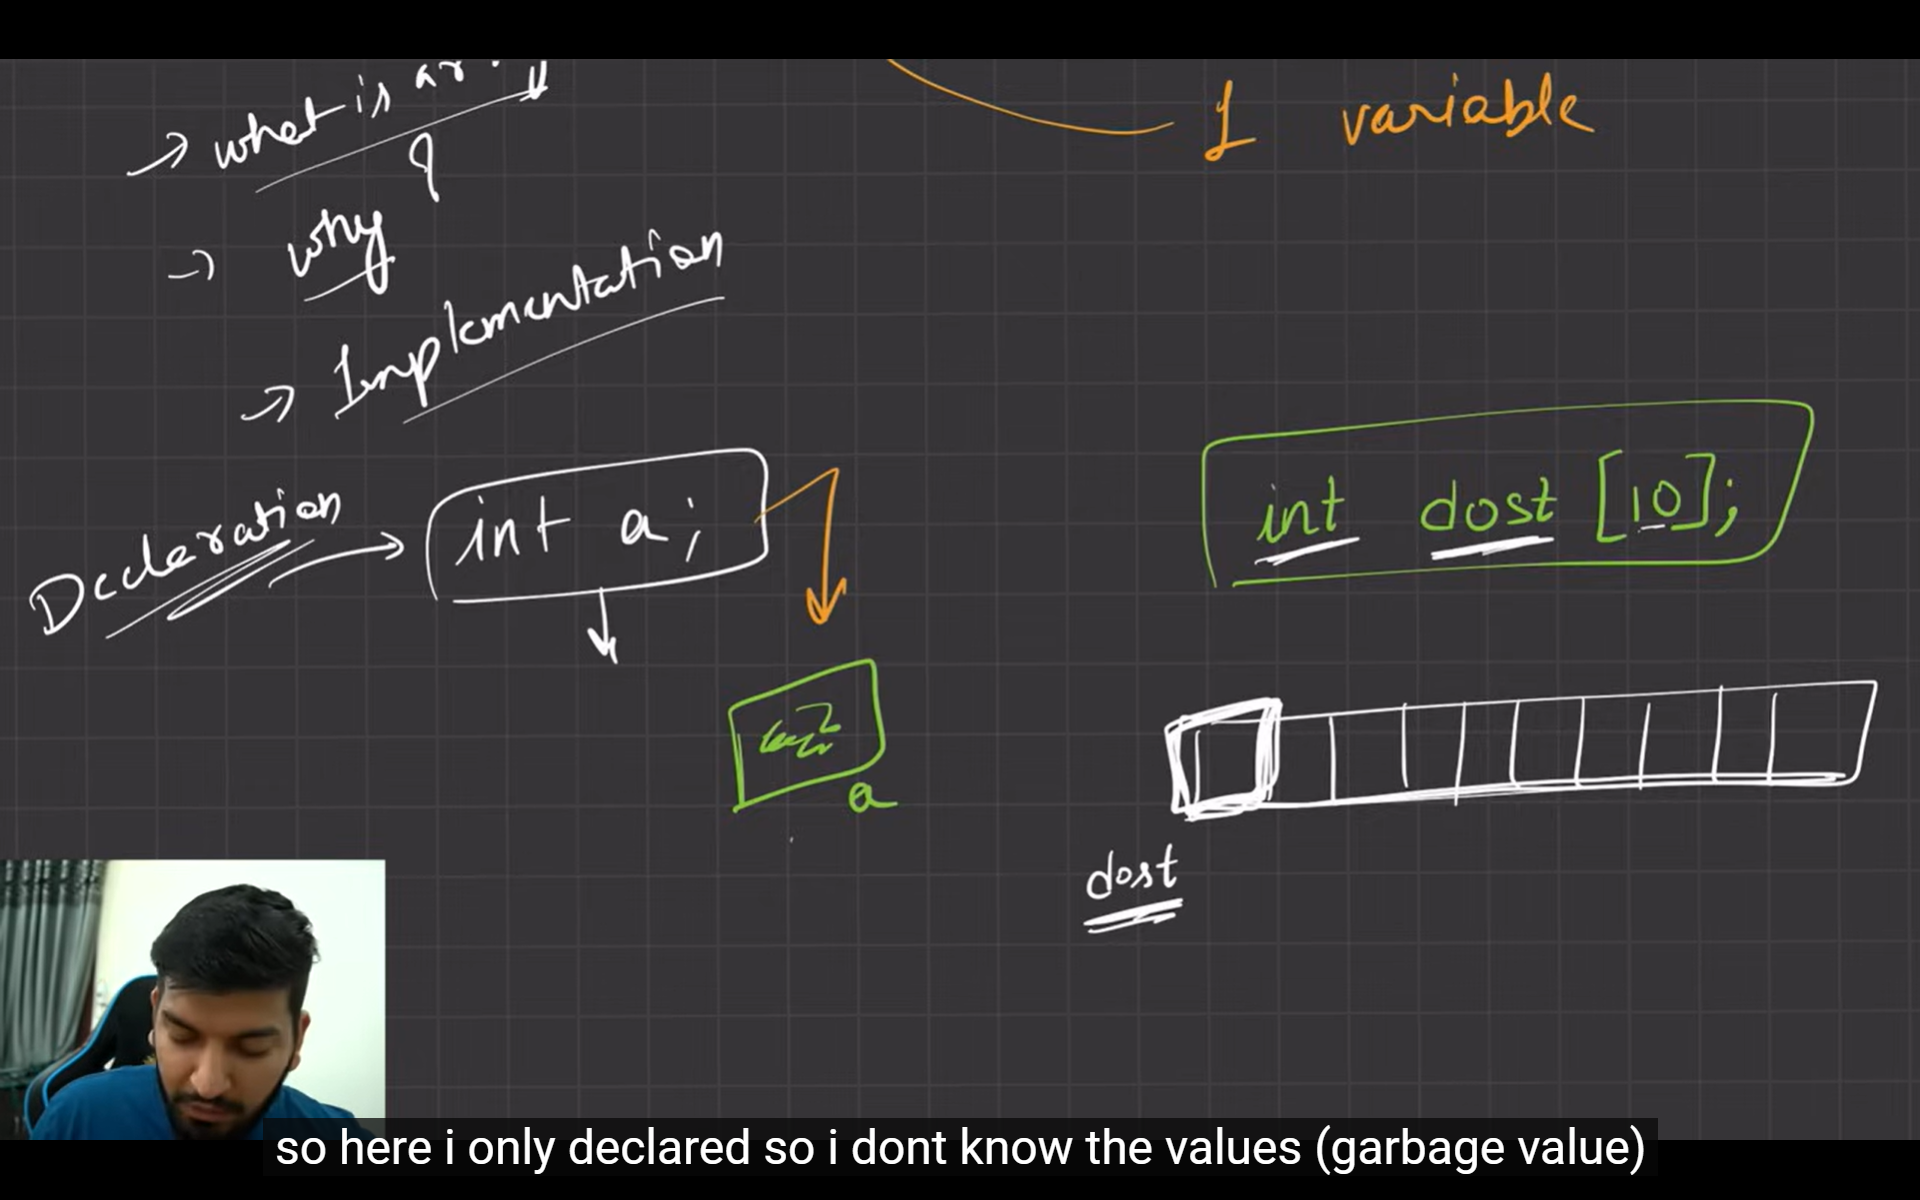 → what is ar
?
→ why
→ Implementation
1 variable
Decleration → int a;
int dost [10];
a
dost
so here i only declared so i dont know the values (garbage value)